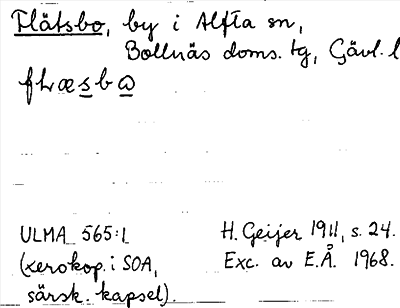 Flätsbo, by i Alfta sn,
Bollnäs doms. tg, Gävl. l
fLæsbɷ
ULMA 565:1 H. Geijer 1911, s. 24.
(xerokop. i SOA, Exc. av E.Å. 1968.
särsk. kapsel).